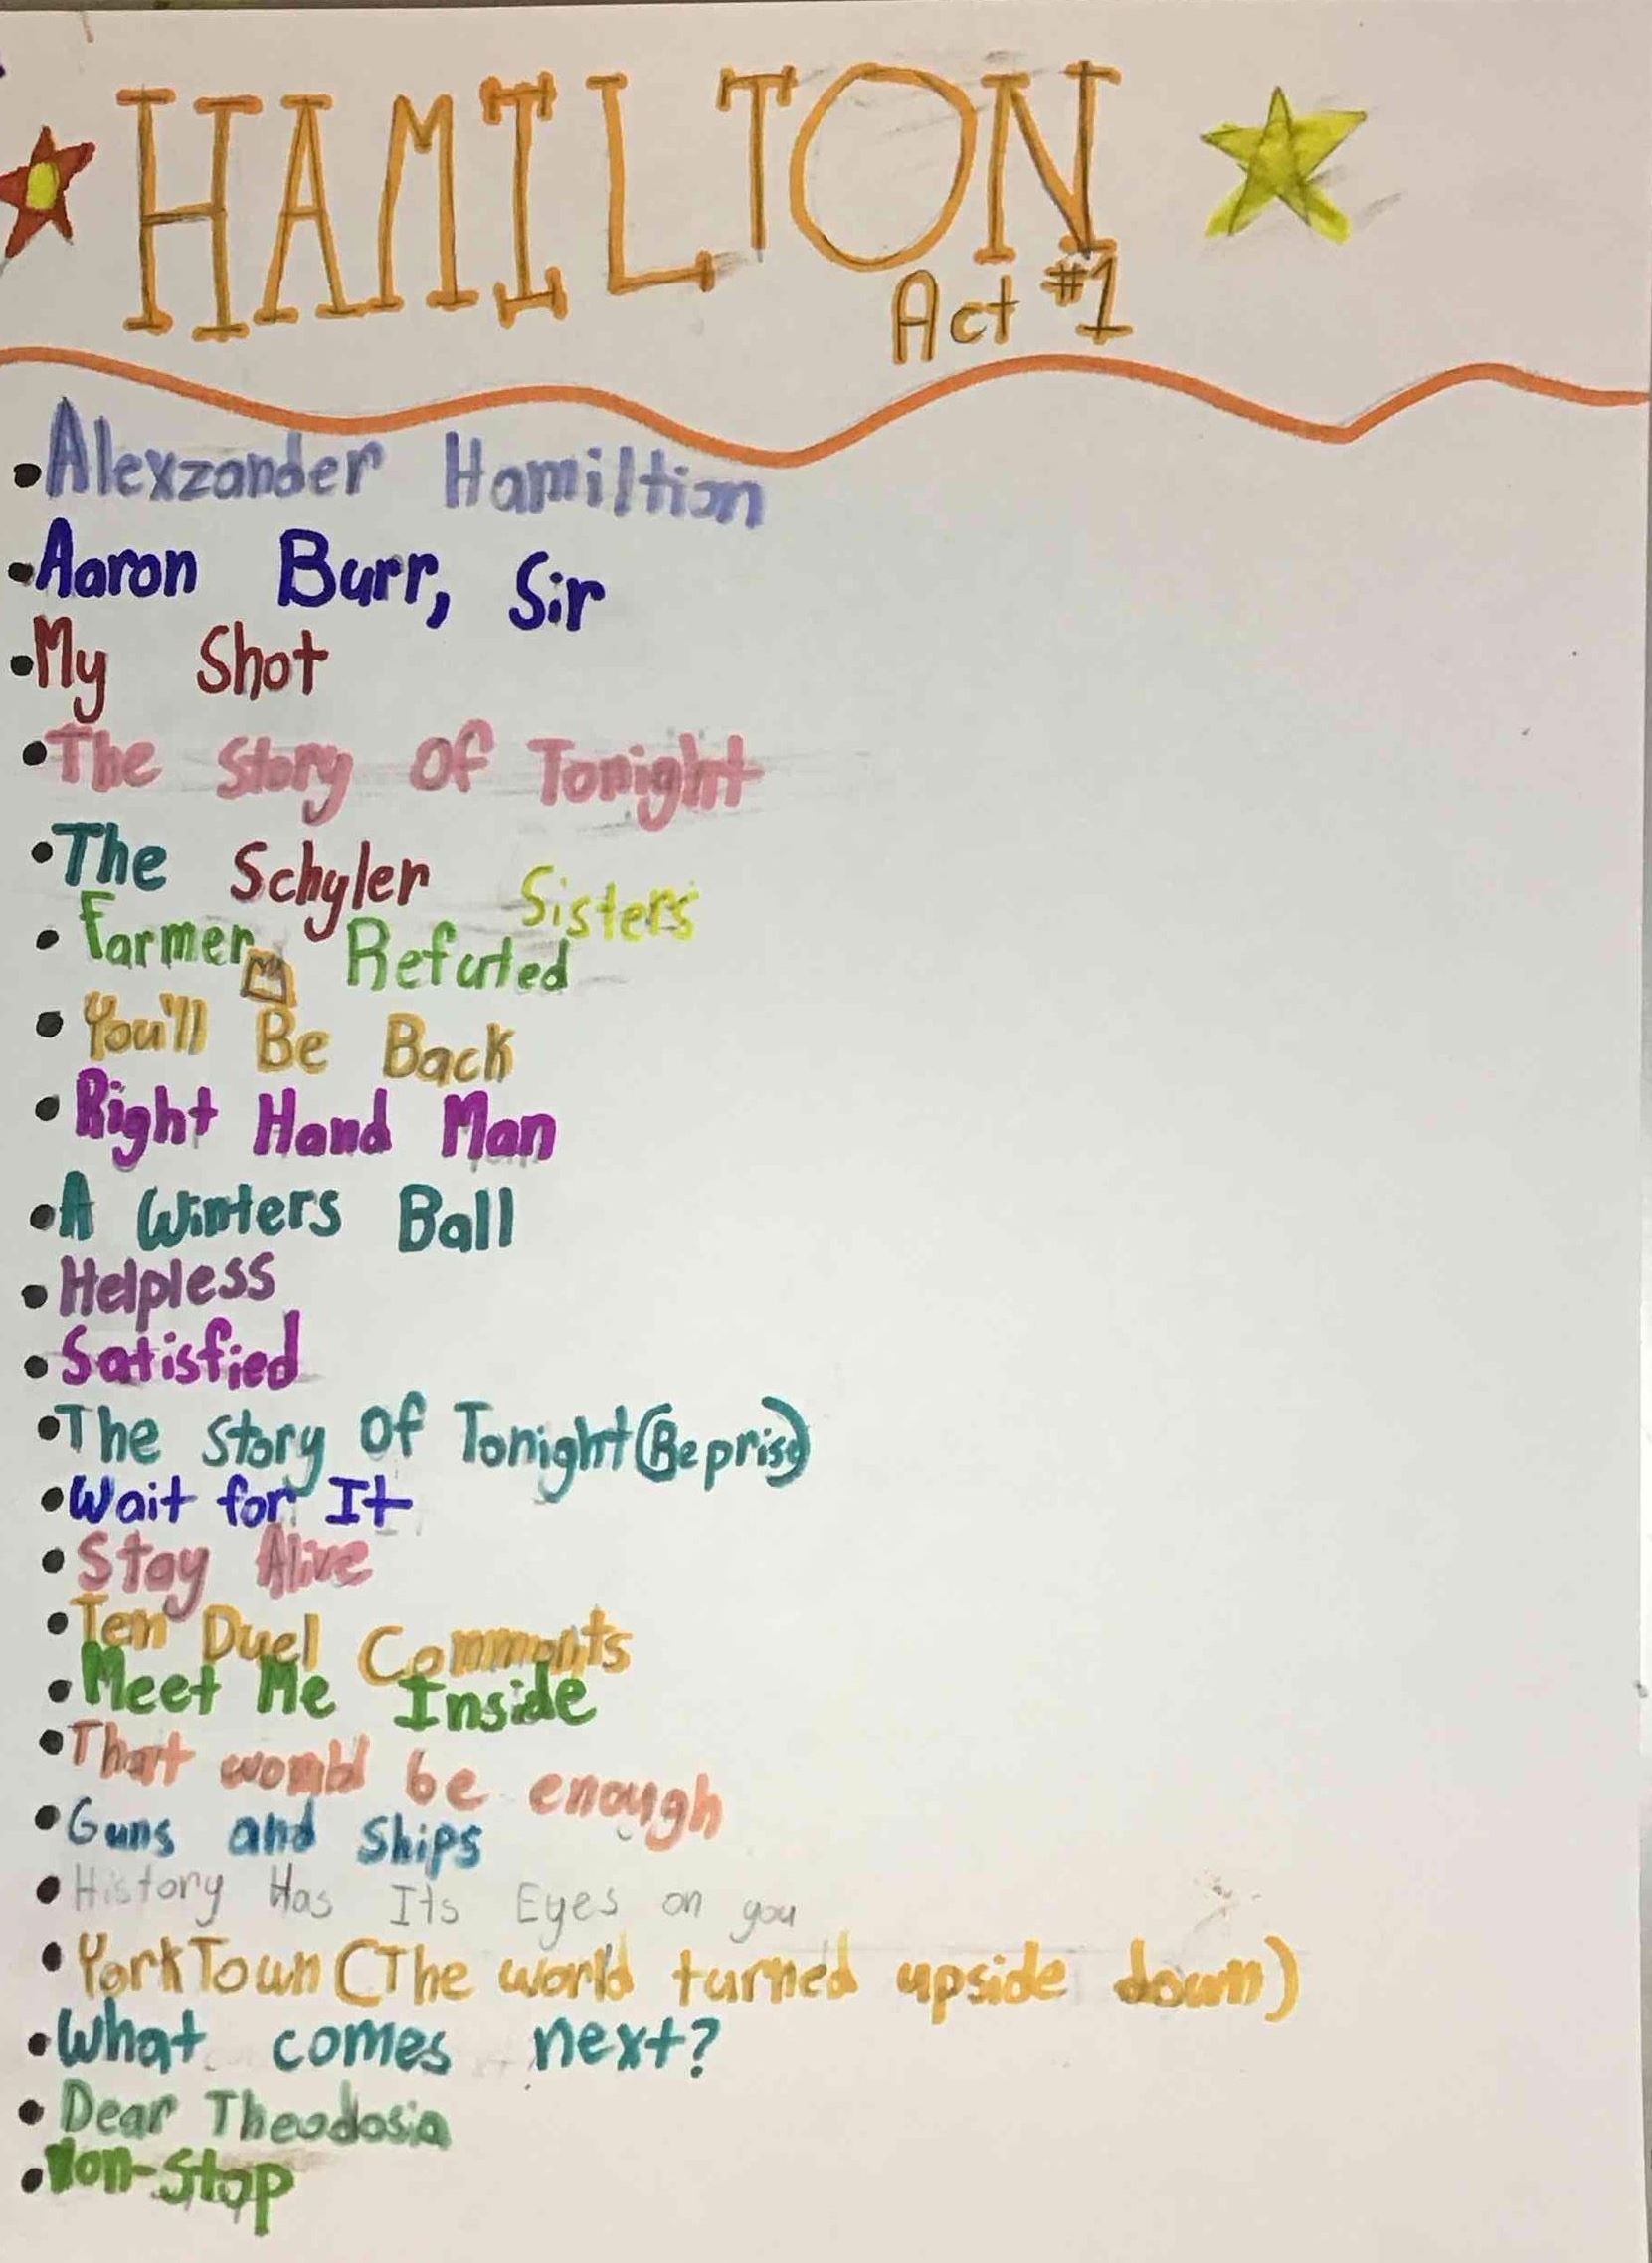 HAMILTON
Act #1
•Alexzander Hamiltion
•Aaron Burr, Sir
•My Shot
•The Story Of Tonight
•The Schyler Sisters
• Farmer Refuted
• You'll Be Back
• Right Hand Man
•A Winters Ball
• Helpless
• Satisfied
•The Story Of Tonight (Reprise)
•Wait for It
•Stay Alive
•Ten Duel Commonts
•Meet Me Inside
•That would be enough
•Guns and Ships
•History Has Its Eyes on you
•YorkTown (The world turned upside down)
•What comes next?
• Dear Theodosia
•Non-Stop